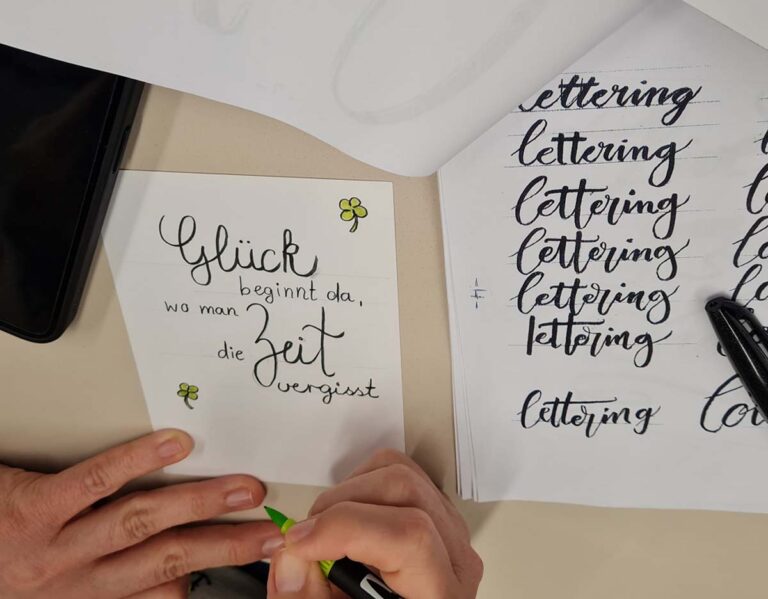 Glück
beginnt da,
wo man
die Zeit
vergisst
lettering
lettering
lettering
lettering
lettering
lettering
lettering